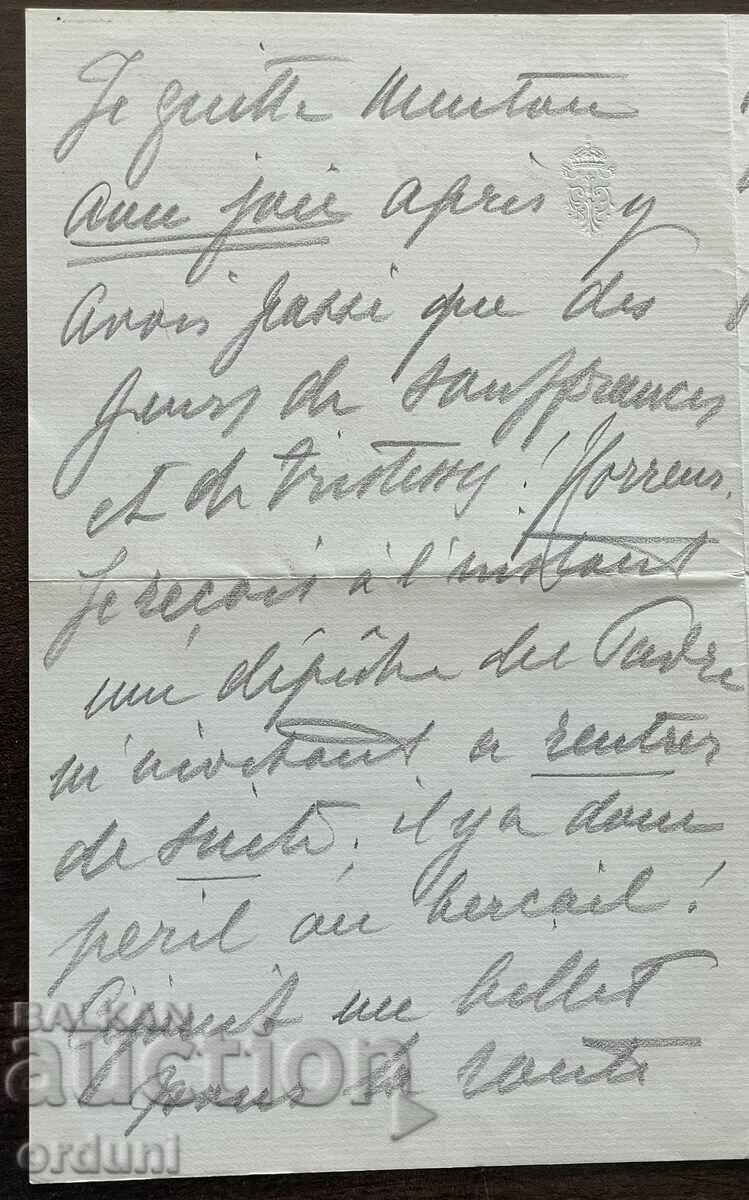 Je quitte Menton
avec joie après y
avoir passé que des
jours de souffrances
et de tristesse! Horreur.
Je reçois à l'instant
une dépêche du Padre
m'invitant a rentrer
de suite, il y a donc
peril au bercail!
un billet
pour la route
BALKAN
auction
orduni